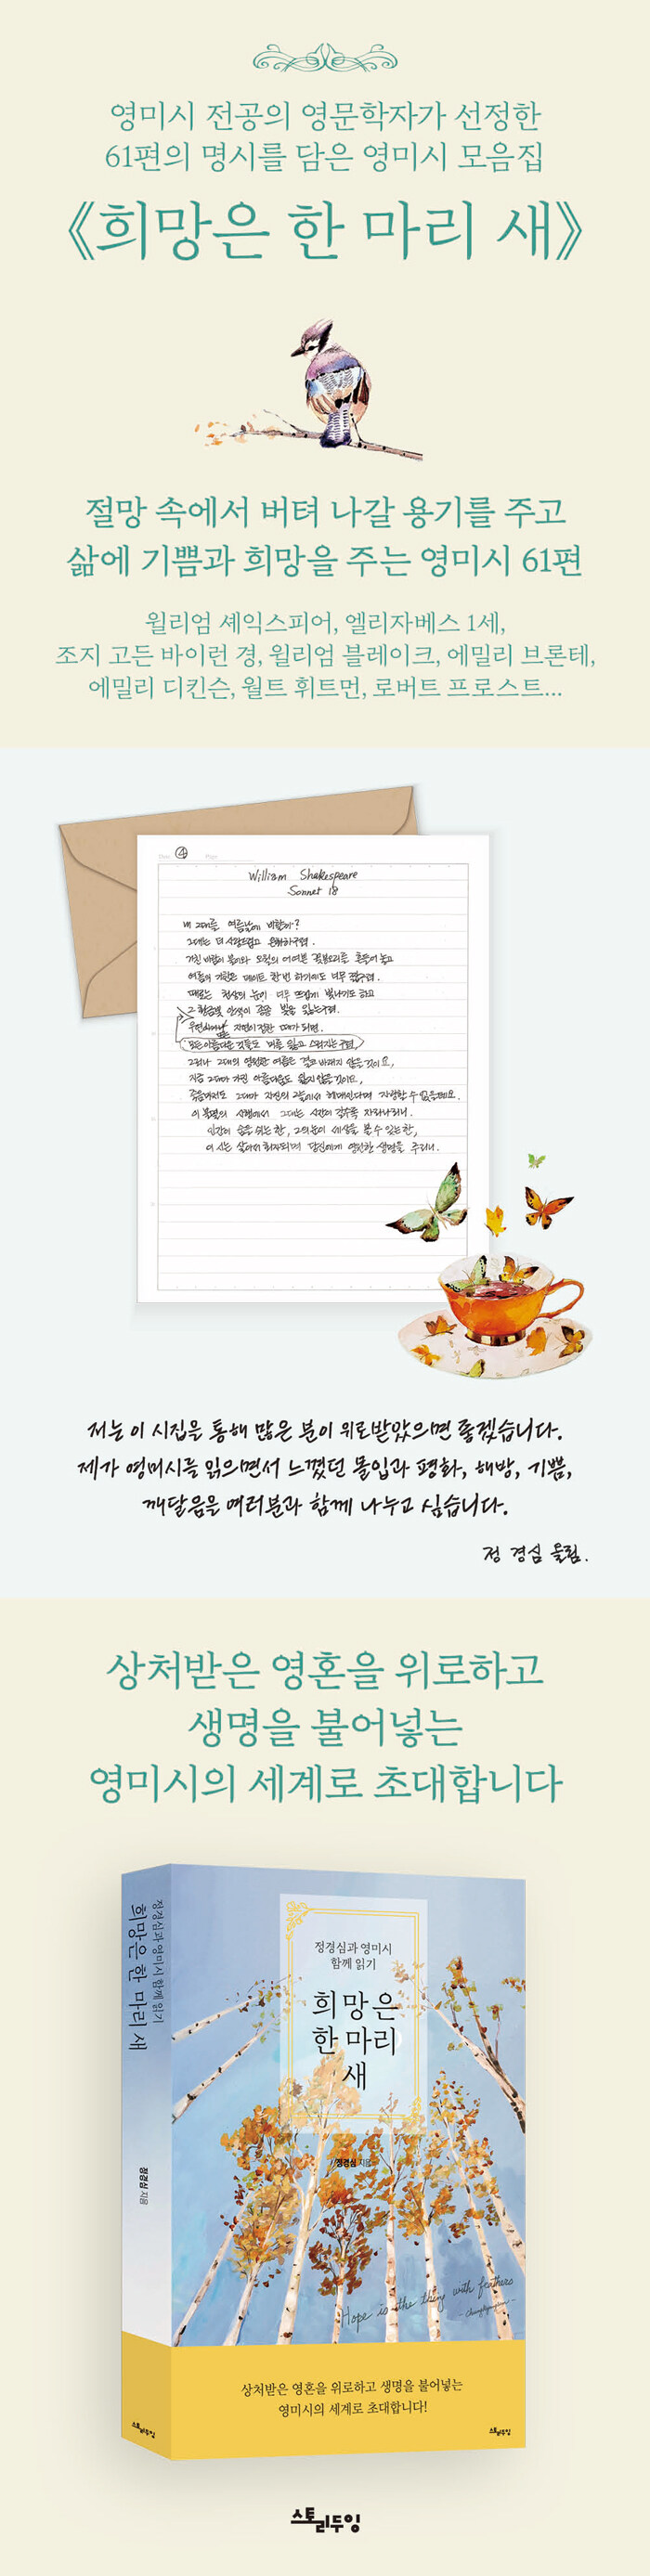 영미시 전공의 영문학자가 선정한
61편의 명시를 담은 영미시 모음집
《희망은 한 마리 새》
절망 속에서 버텨 나갈 용기를 주고
삶에 기쁨과 희망을 주는 영미시 61편
윌리엄 셰익스피어, 엘리자베스 1세,
조지 고든 바이런 경, 윌리엄 블레이크, 에밀리 브론테,
에밀리 디킨슨, 월트 휘트먼, 로버트 프로스트...
④
William Shakespeare
Sonnet 18
내 그대를 여름날에 비할까?
그대는 더 사랑스럽고 온화하구려.
거친 바람이 불어와 오월의 어여쁜 꽃봉오리를 흔들어 놓고
여름의 기한은 데이트 한번 하기에도 너무 짧구려.
때로는 천상의 눈이 너무 뜨겁게 빛나기도 하고
그 황금빛 안색이 종종 빛을 잃는구려.
우연이거나 자연이 정한 때가 되면.
모든 아름다운 것들도 벼를 잃고 스러지는구려.
그러나 그대의 영원한 여름은 결코 바래지 않을 것이요,
지금 그대가 가진 아름다움도 잃지 않을 것이요,
죽음마저도 그대가 자신의 그늘에서 헤매인다며 자랑할 수 없을테요.
이 불멸의 시행에서 그대는 시간이 갈수록 자라나리니.
인간이 숨을 쉬는 한, 그의 눈이 세상을 볼 수 있는 한,
이 시는 살아서 회자되며 당신에게 영원한 생명을 주리니.
저는 이 시집을 통해 많은 분이 위로받았으면 좋겠습니다.
제가 영미시를 읽으면서 느꼈던 몰입과 평화, 해방, 기쁨,
깨달음을 여러분과 함께 나누고 싶습니다.
정 경심 드림.
상처받은 영혼을 위로하고
생명을 불어넣는
영미시의 세계로 초대합니다
정경심과 영미시 함께 읽기
희망은 한 마리 새
정경심 지음
스토리두잉
정경심과 영미시
함께 읽기
희망은
한 마리
새
정경심 지음
Hope is the thing with feathers
상처받은 영혼을 위로하고 생명을 불어넣는
영미시의 세계로 초대합니다!
스토리두잉
스토리두잉